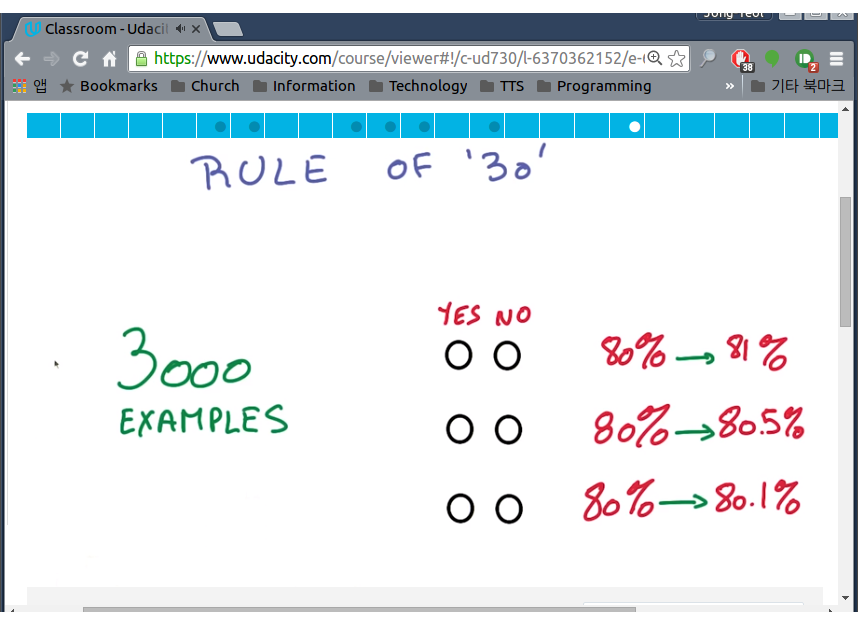 Classroom - Udacit
https://www.udacity.com/course/viewer#!/c-ud730/l-6370362152/e-
38
2
앱 Bookmarks Church Information Technology TTS Programming » 기타 북마크
RULE OF '30'
YES NO
3000
EXAMPLES
80% → 81%
80% → 80.5%
80% → 80.1%